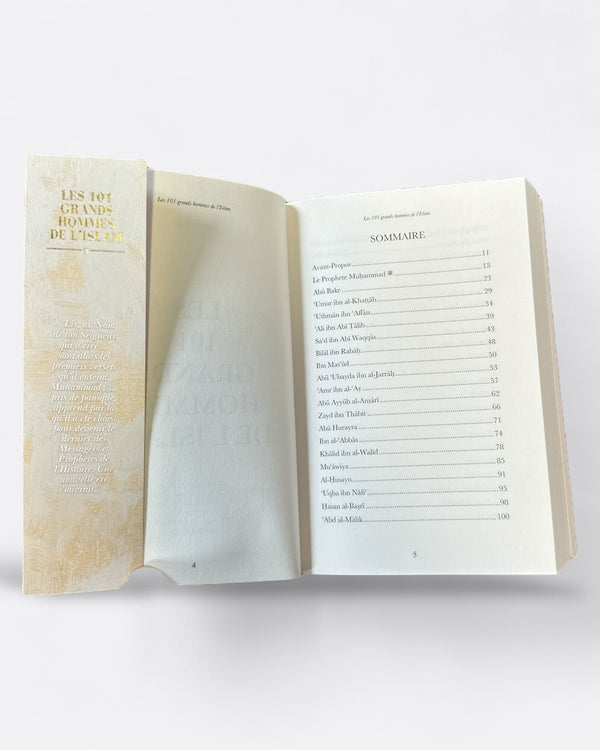 LES 101
GRANDS
HOMMES
DE L'ISLAM
« Lis, au Nom
de ton Seigneur
qui a créé...
sont alors les
premiers versets
qu'il entend.
Muhammad ﷺ,
pris de panique,
apprend par là
qu'il a été choisi
pour devenir le
dernier des
Messagers et
Prophètes de
l'Histoire. Une
nouvelle ère
s'ouvrait...
Les 101 grands hommes de l'Islam
4
Les 101 grands hommes de l'Islam
SOMMAIRE
Avant-Propos 11
Le Prophète Muḥammad ﷺ 15
Abū Bakr 23
'Umar ibn al-Khaṭṭāb 29
'Uthmān ibn 'Affān 34
'Ali ibn Abī Ṭālib 39
Sa'd ibn Abī Waqqās 43
Bilāl ibn Rabāḥ 48
Ibn Mas'ūd 50
Abū 'Ubayda ibn al-Jarrāḥ 53
'Amr ibn al-'Aṣ 57
Abū Ayyūb al-Anṣārī 62
Zayd ibn Thābit 66
Abū Hurayra 71
Ibn al-'Abbās 74
Khālid ibn al-Walīd 78
Mu'āwiya 85
Al-Ḥusayn 91
'Uqba ibn Nāfi' 95
Ḥasan al-Baṣrī 98
'Abd al-Mālik 100
5